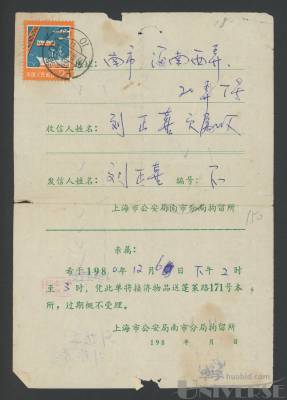 地址：南市
20弄下号
收信人姓名：刘正喜
发信人姓名：刘正喜 编号：下
上海市公安局南市分局拘留所
亲属：
希于1980年12月6日下午2时
至3时，凭此单将接济物品送蓬莱路171号本
所，过期概不受理。
上海市公安局南市分局拘留所
198 年 月 日
huabid.com
UNIVERSE